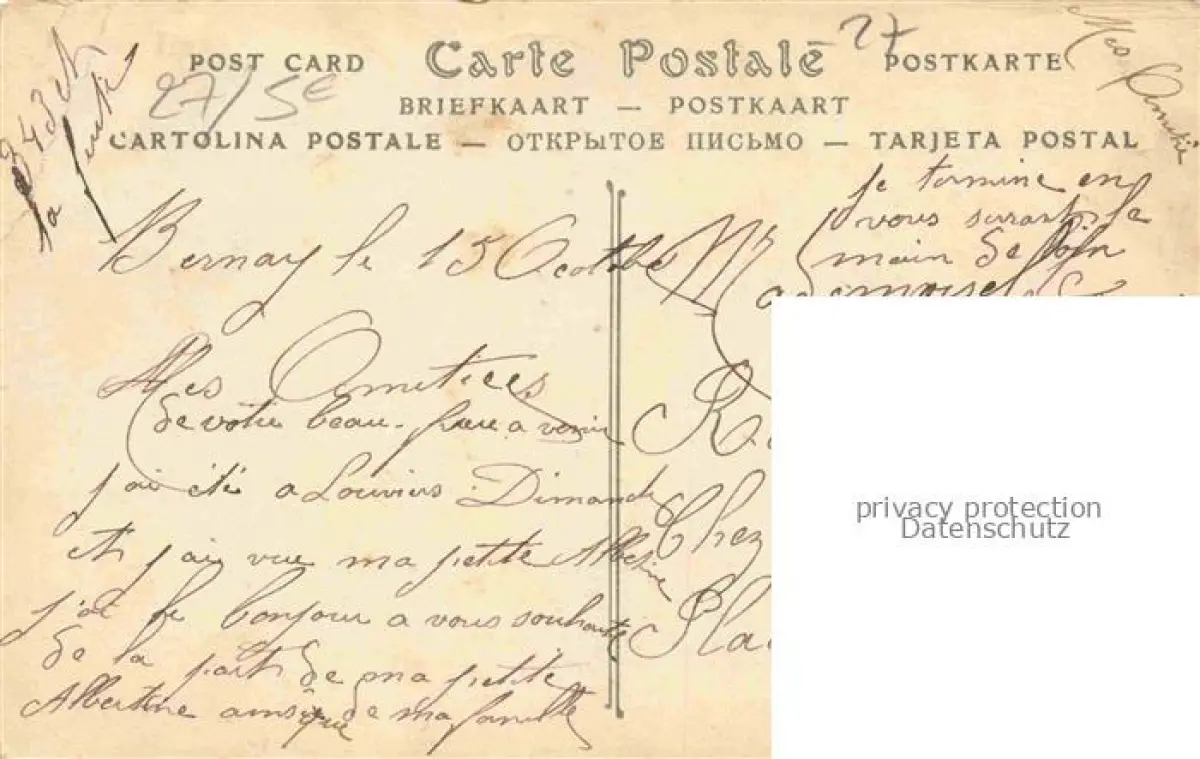 27
Mes
POST CARD Carte Postale POSTKARTE
27/5€
BRIEFKAART — POSTKAART
CARTOLINA POSTALE — ОТКРЫТОЕ ПИСЬМО — TARJETA POSTAL
je termine en
vous serrant la
main de loin
Bernay le 15 Ocotbre
Mes Ametices
de votre beau-frere a venir
j'ai été a Louviers Dimanche
et j'ai vue ma petite Albertine
j'ai le bonjour a vous souhaité
de la part de ma petite
Albertine ainsi que de ma famille
Mademoisel
R.
Chez
Pla
privacy protection
Datenschutz